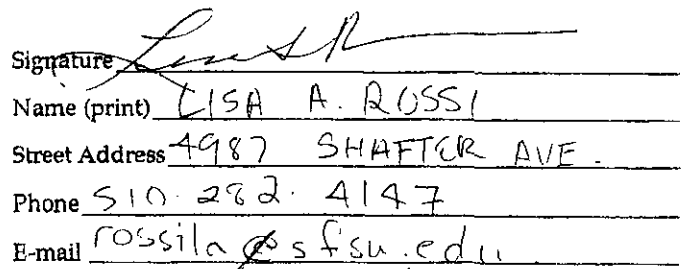 Signature
Name (print) LISA A. ROSSI
Street Address 4987 SHAFTER AVE.
Phone 510. 282. 4147
E-mail rossila@sfsu.edu